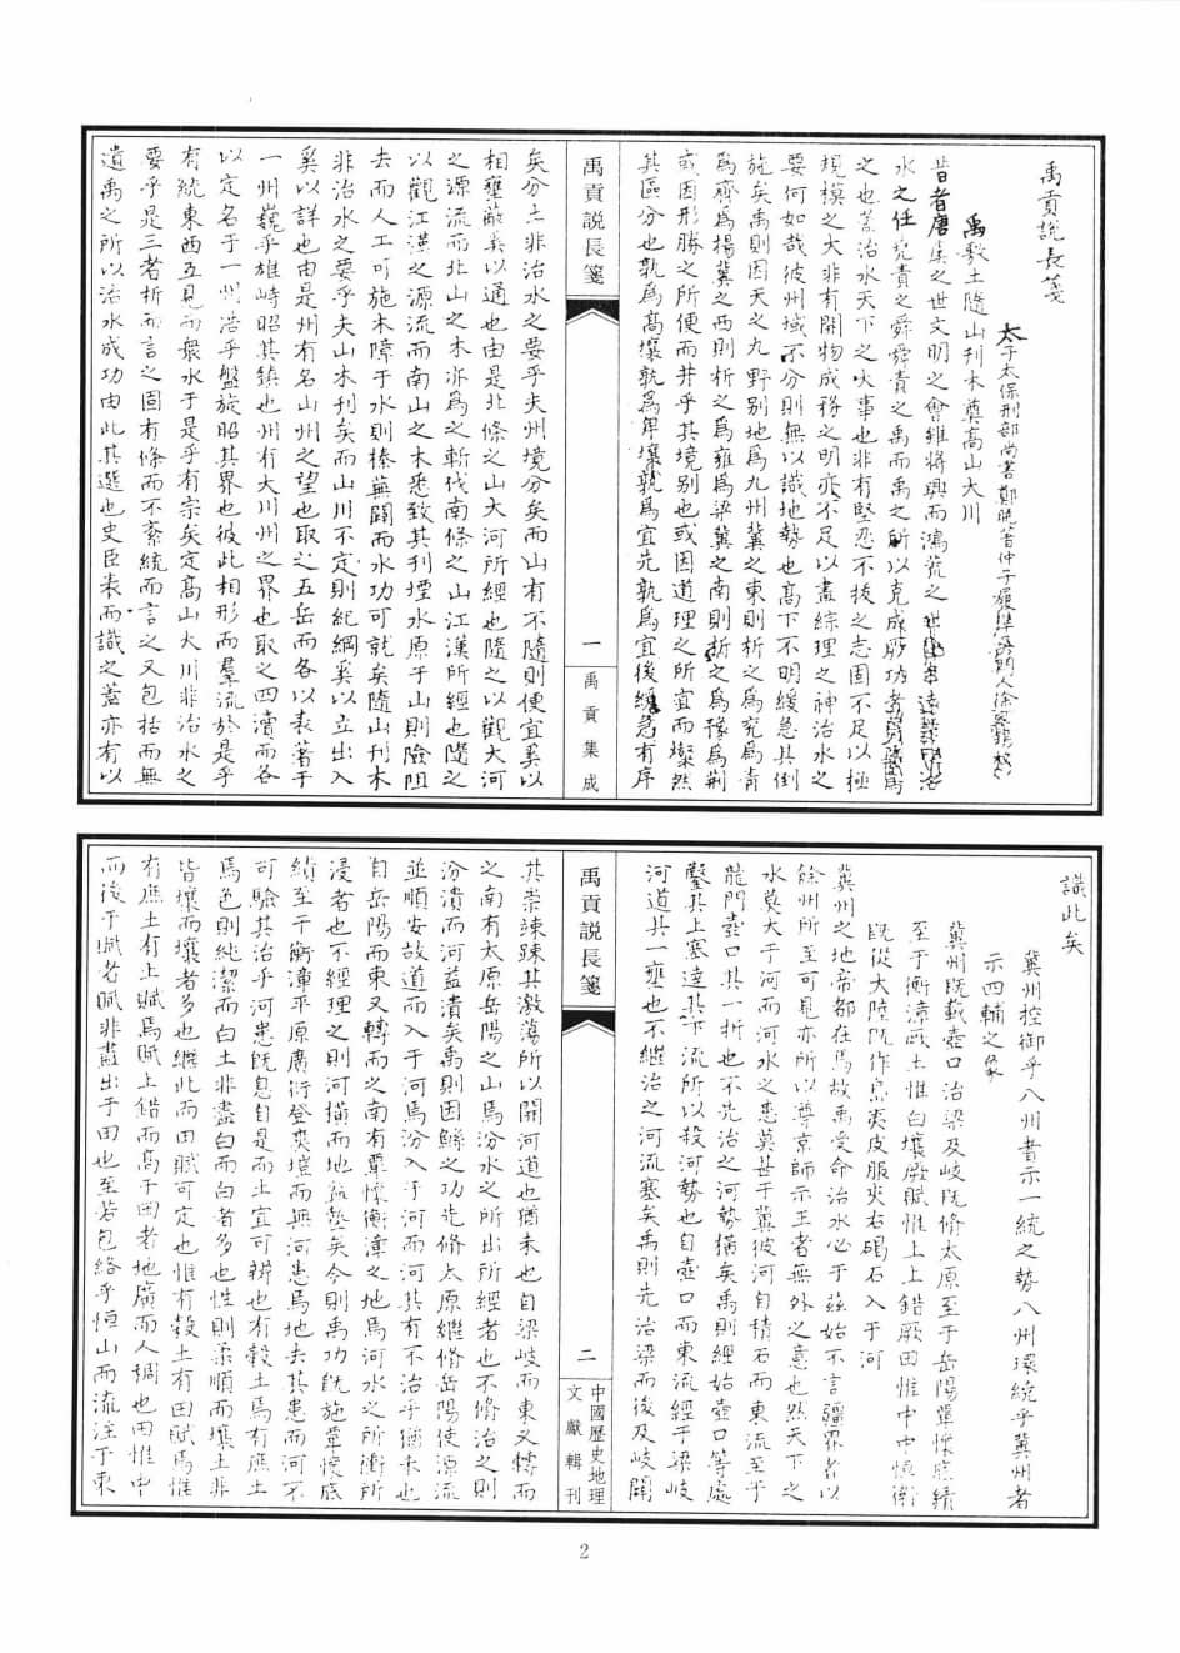 禹貢說長箋
太子太保刑部尚書鄭曉著仲子履準
禹敷土隨山刊木奠高山大川
昔者唐虞之世文明之會雖將興而鴻荒之世
水之任堯責之舜舜責之禹而禹之所以克成厥功者
之也蓋治水天下之大事也非有堅忍不拔之志固不足以極
規模之大非有開物成務之明亦不足以盡綜理之神治水之
要何如哉彼州域不分則無以識地勢也高下不明緩急具倒
施矣禹則因天之九野别地為九州冀之東則析之為兗為青
為齊為揚冀之西則析之為雍為梁冀之南則析之為豫為荆
或因形勝之所便而井乎其境别也或因道理之所宜而燦然
其區分也孰為高壤孰為卑壤孰為宜先孰為宜後緩急有序
禹貢說長箋
一
禹貢集成
矣分土非治水之要乎夫州境分矣而山有不隨則便宜奚以
相壅蔽奚以通也由是北條之山大河所經也隨之以觀大河
之源流而北山之木亦為之斬伐南條之山江漢所經也隨之
以觀江漢之源流而南山之木悉致其刊堙水原于山則險阻
去而人工可施木障于水則榛蕪闢而水功可就矣隨山刊木
非治水之要乎夫山木刊矣而山川不定則紀綱奚以立出入
奚以詳也由是州有名山州之望也取之五岳而各以表著于
一州巍乎雄峙昭其鎮也州有大川州之界也取之四瀆而各
以定名于一州浩乎盤旋昭其界也彼此相形而羣流於是乎
有統東西互見而衆水于是乎有宗矣定高山大川非治水之
要乎是三者析而言之固有條而不紊統而言之又包括而無
遺禹之所以治水成功由此其選也史臣表而識之蓋亦有以
識此矣
冀州控御乎八州者示一統之勢八州環統乎冀州者
示四輔之象
冀州既載壺口治梁及岐既脩太原至于岳陽覃懷厎績
至于衡漳厥土惟白壤厥賦惟上上錯厥田惟中中恒衛
既從大陸既作島夷皮服夾右碣石入于河
冀州之地帝都在焉故禹受命治水必于茲始不言疆界者以
餘州所至可見亦所以尊京師示王者無外之意也然天下之
水莫大于河而河水之患莫甚于冀彼河自積石而東流至乎
龍門壺口其一折也不先治之河勢橫矣禹則經始壺口等處
鑿其上塞達其下流所以殺河勢也自壺口而東流經于梁岐
河道其一壅也不繼治之河流塞矣禹則先治梁而後及岐開
禹貢說長箋
二
中國歷史地理
文獻輯刊
其崇竦踈其激蕩所以開河道也猶未也自梁岐而東又轉而
之南有太原岳陽之山焉汾水之所出所經者也不脩治之則
汾潰而河益潰矣禹則因鯀之功先脩太原繼脩岳陽使源流
並順安故道而入于河焉汾入于河而河其有不治乎猶未也
自岳陽而東又轉而之南有覃懷衡漳之地焉河水之所衝所
浸者也不經理之則河橫而地益墊矣今則禹功既施覃懷底
績至于衡漳平原廣衍登爽塏而無河患焉地去其患而河不
可驗其治乎河患既息自是而土宜可辨也有穀土焉有庶土
焉色則純潔而白土非盡白而白者多也性則柔順而壤土非
皆壤而壤者多也繼此而田賦可定也惟有穀土有田賦焉惟
有庶土有止賦焉賦上錯而高于田者地廣而人稠也田惟中
而後于賦者賦非盡出于田也至若包絡乎恒山而流注于東
2